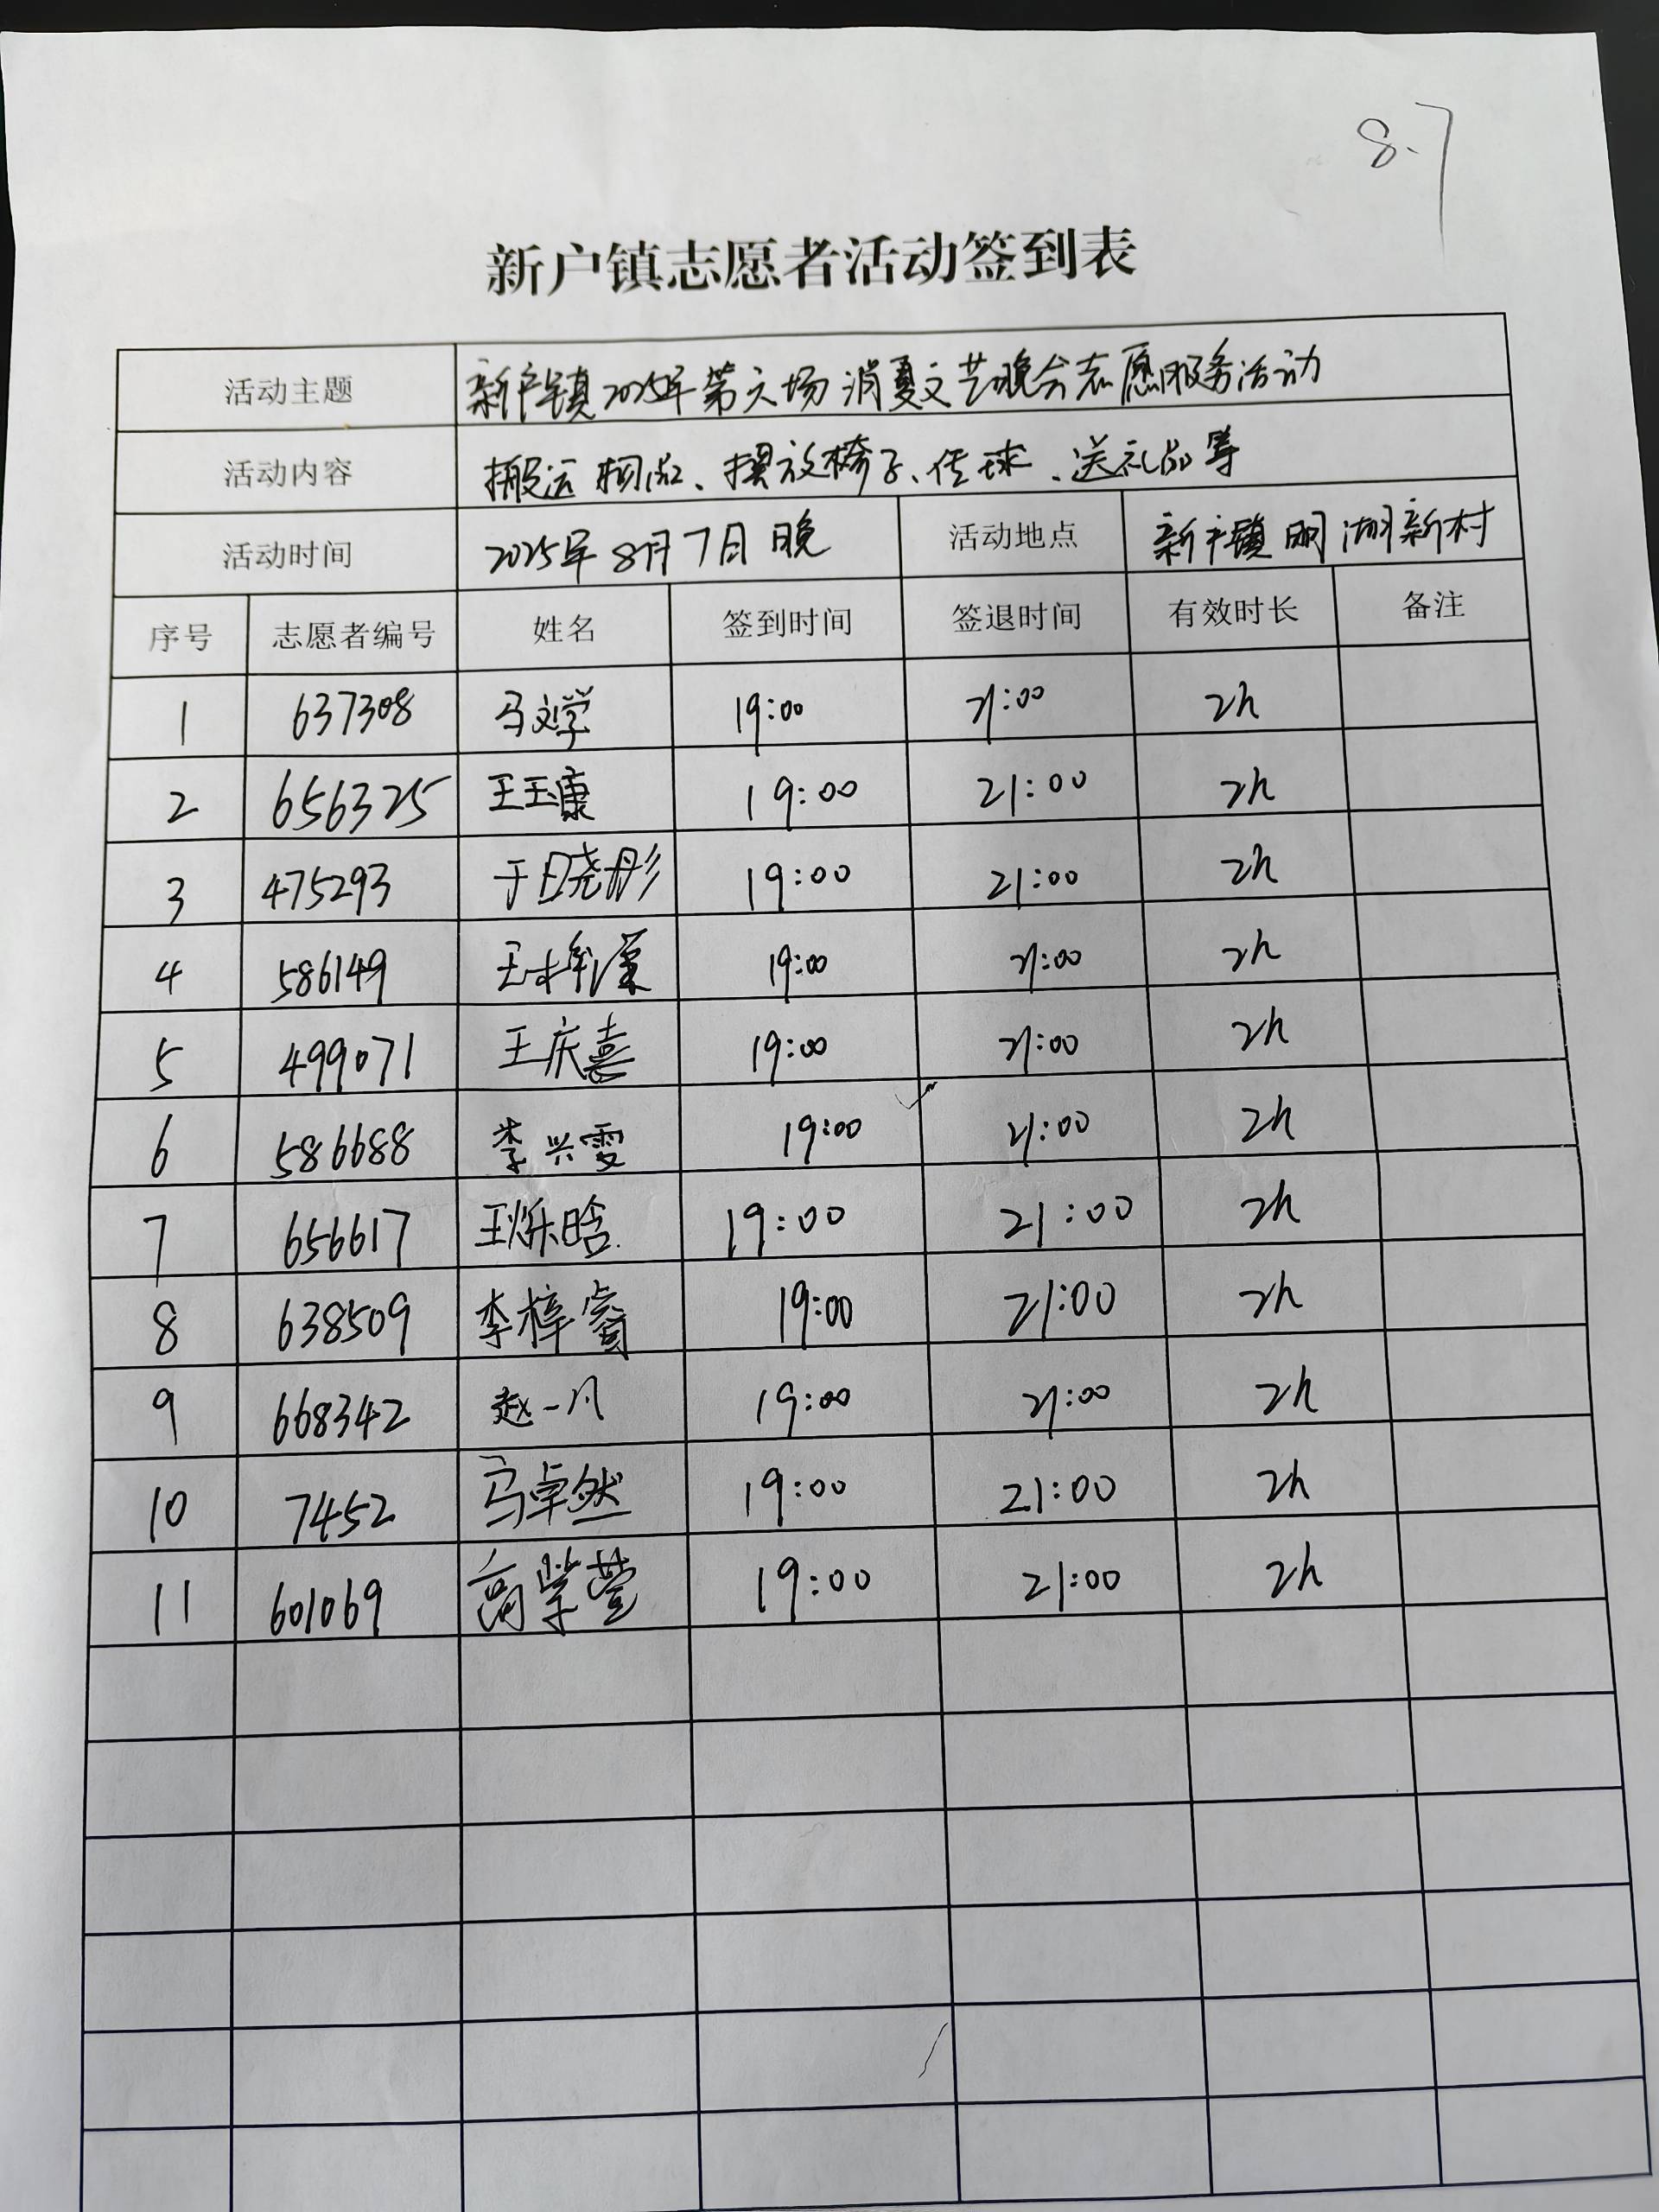 8.7
新户镇志愿者活动签到表
活动主题 新户镇2025年第六场消夏文艺晚会志愿服务活动
活动内容 搬运物品、摆放椅子、传球、送礼品等
活动时间 2025年8月7日晚 活动地点 新户镇明湖新村
序号 志愿者编号 姓名 签到时间 签退时间 有效时长 备注
1 637308 马文学 19:00 21:00 2h
2 656325 王玉康 19:00 21:00 2h
3 475293 于晓彤 19:00 21:00 2h
4 586149 19:00 21:00 2h
5 499071 王庆喜 19:00 21:00 2h
6 586688 李兴雯 19:00 21:00 2h
7 656617 王烁晗 19:00 21:00 2h
8 638509 李梓睿 19:00 21:00 2h
9 668342 赵一凡 19:00 21:00 2h
10 7452 马卓然 19:00 21:00 2h
11 601069 高紫萱 19:00 21:00 2h